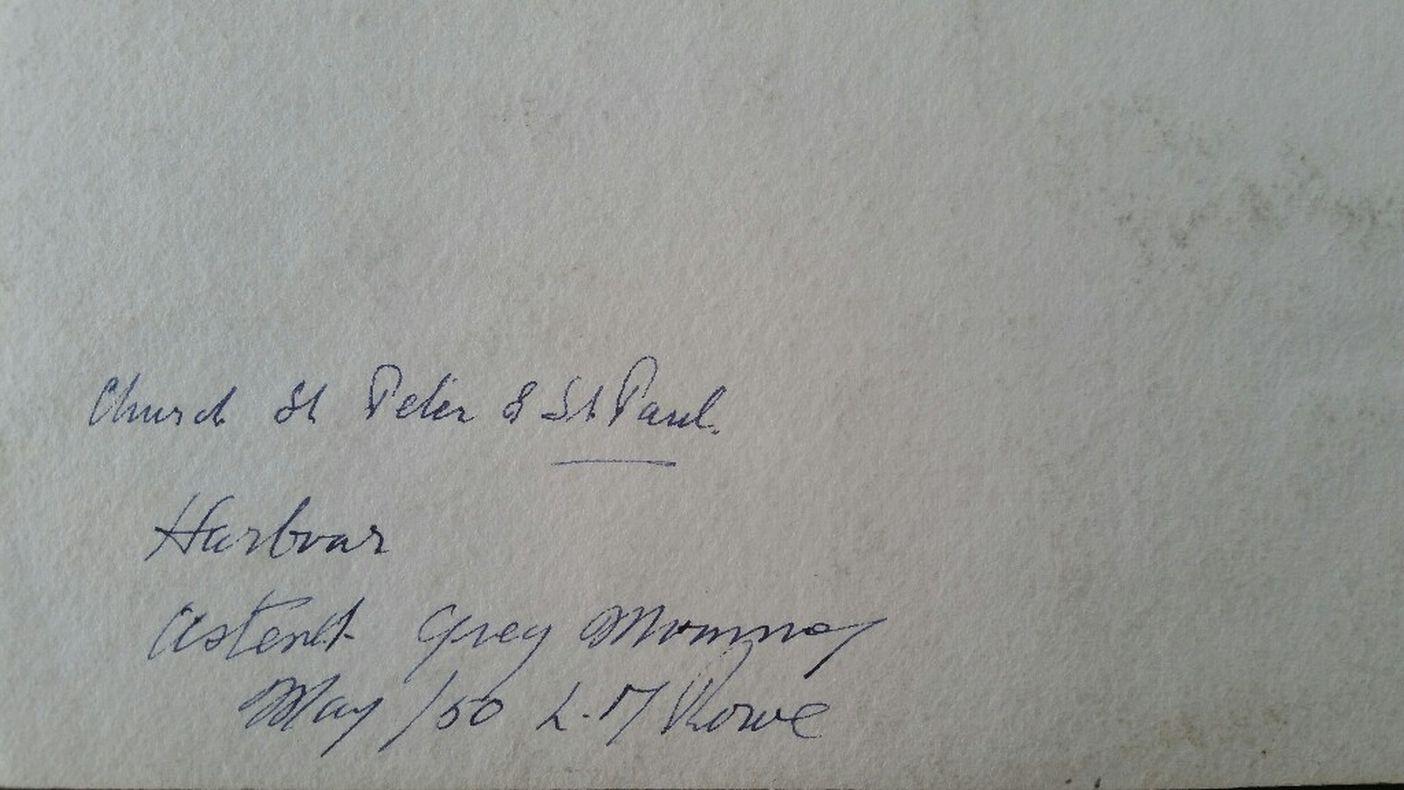 Church St Peter & St Paul.
Harbour
Ostend Grey Morning
May /50 L. M Rowe